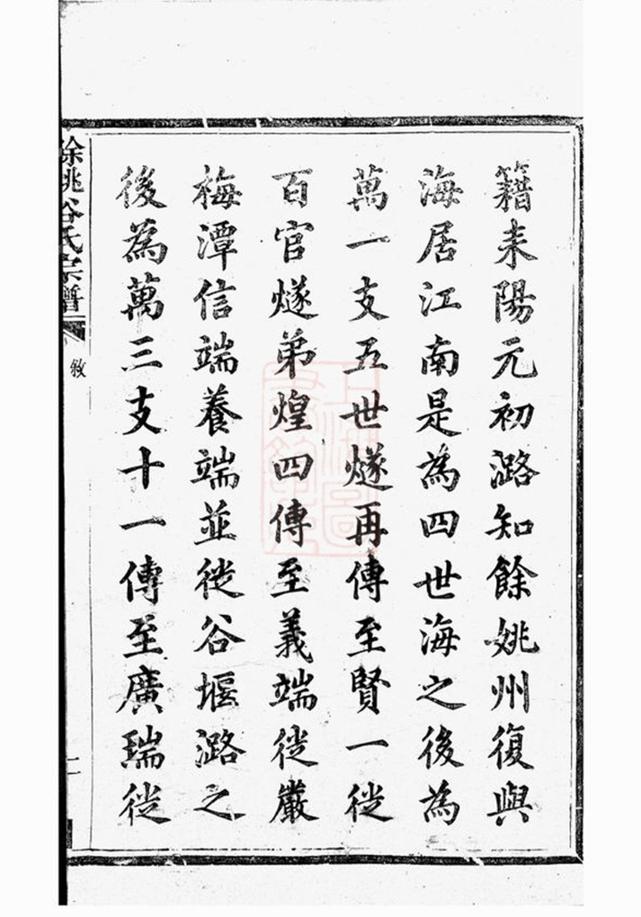 籍耒陽元初潞知餘姚州復與
海居江南是為四世海之後為
萬一支五世燧再傳至賢一徙
百官燧弟煌四傳至義端徙嚴
梅潭信端養端並徙谷堰潞之
後為萬三支十一傳至廣瑞徙
餘姚谷氏宗譜
敘
二